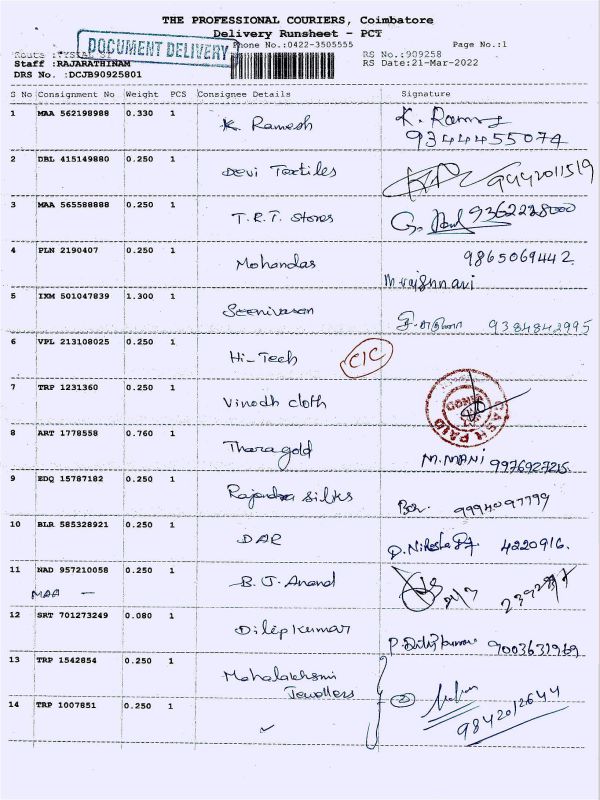 THE PROFESSIONAL COURIERS, Coimbatore
Delivery Runsheet - PCT
DOCUMENT DELIVERY
Phone No.:0422-3505555 Page No.:1
Route : RS No.:909258
Staff :RAJARATHINAM RS Date:21-Mar-2022
DRS No. :DCJB90925801
S No Consignment No Weight PCS Consignee Details Signature
1 MAA 562198988 0.330 1 K. Ramesh K. Ramesh
9344455074
2 DBL 415149880 0.250 1 Devi Textiles 9442011519
3 MAA 565588888 0.250 1 T.R.T. Stores G. 9362228000
4 PLN 2190407 0.250 1 Mohandas 9865069442
5 IXM 501047839 1.300 1 Seenivasan 9384842995
6 VPL 213108025 0.250 1 Hi-Tech C/C
7 TRP 1231360 0.250 1 Vinodh cloth CASH PAID
8 ART 1778558 0.760 1 Tharagold M. MANI 9976927215.
9 EDQ 15787182 0.250 1 Rajendra silks 9994097799
10 BLR 585328921 0.250 1 4220916.
11 NAD 957210058 0.250 1 B. J. Anand
MAA -
12 SRT 701273249 0.080 1 Dilip Kumar P. Dilip kumar 9003631969
13 TRP 1542854 0.250 1 Mahalakshmi
Jewellers
14 TRP 1007851 0.250 1 ✓ 2 9842012644